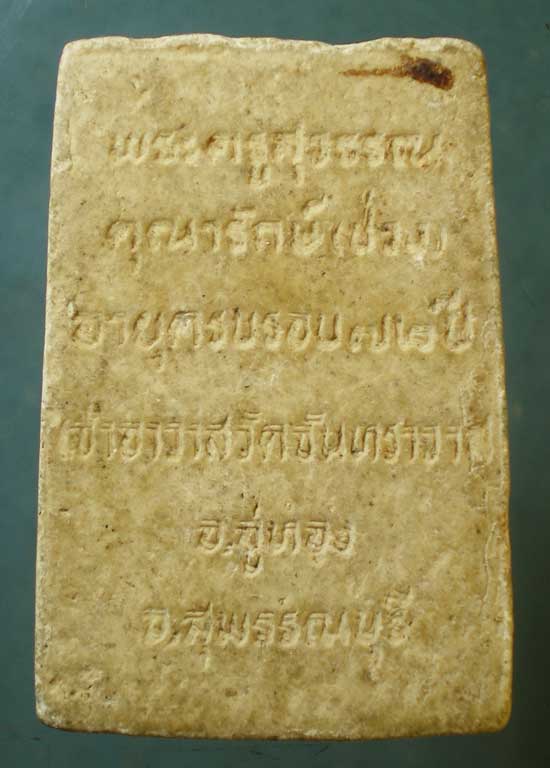 พระครูสุวรรณ
คุณารักษ์(ช่วง)
อายุครบรอบ๗๒ปี
เจ้าอาวาสวัดจันทราวาส
อ.อู่ทอง
จ.สุพรรณบุรี